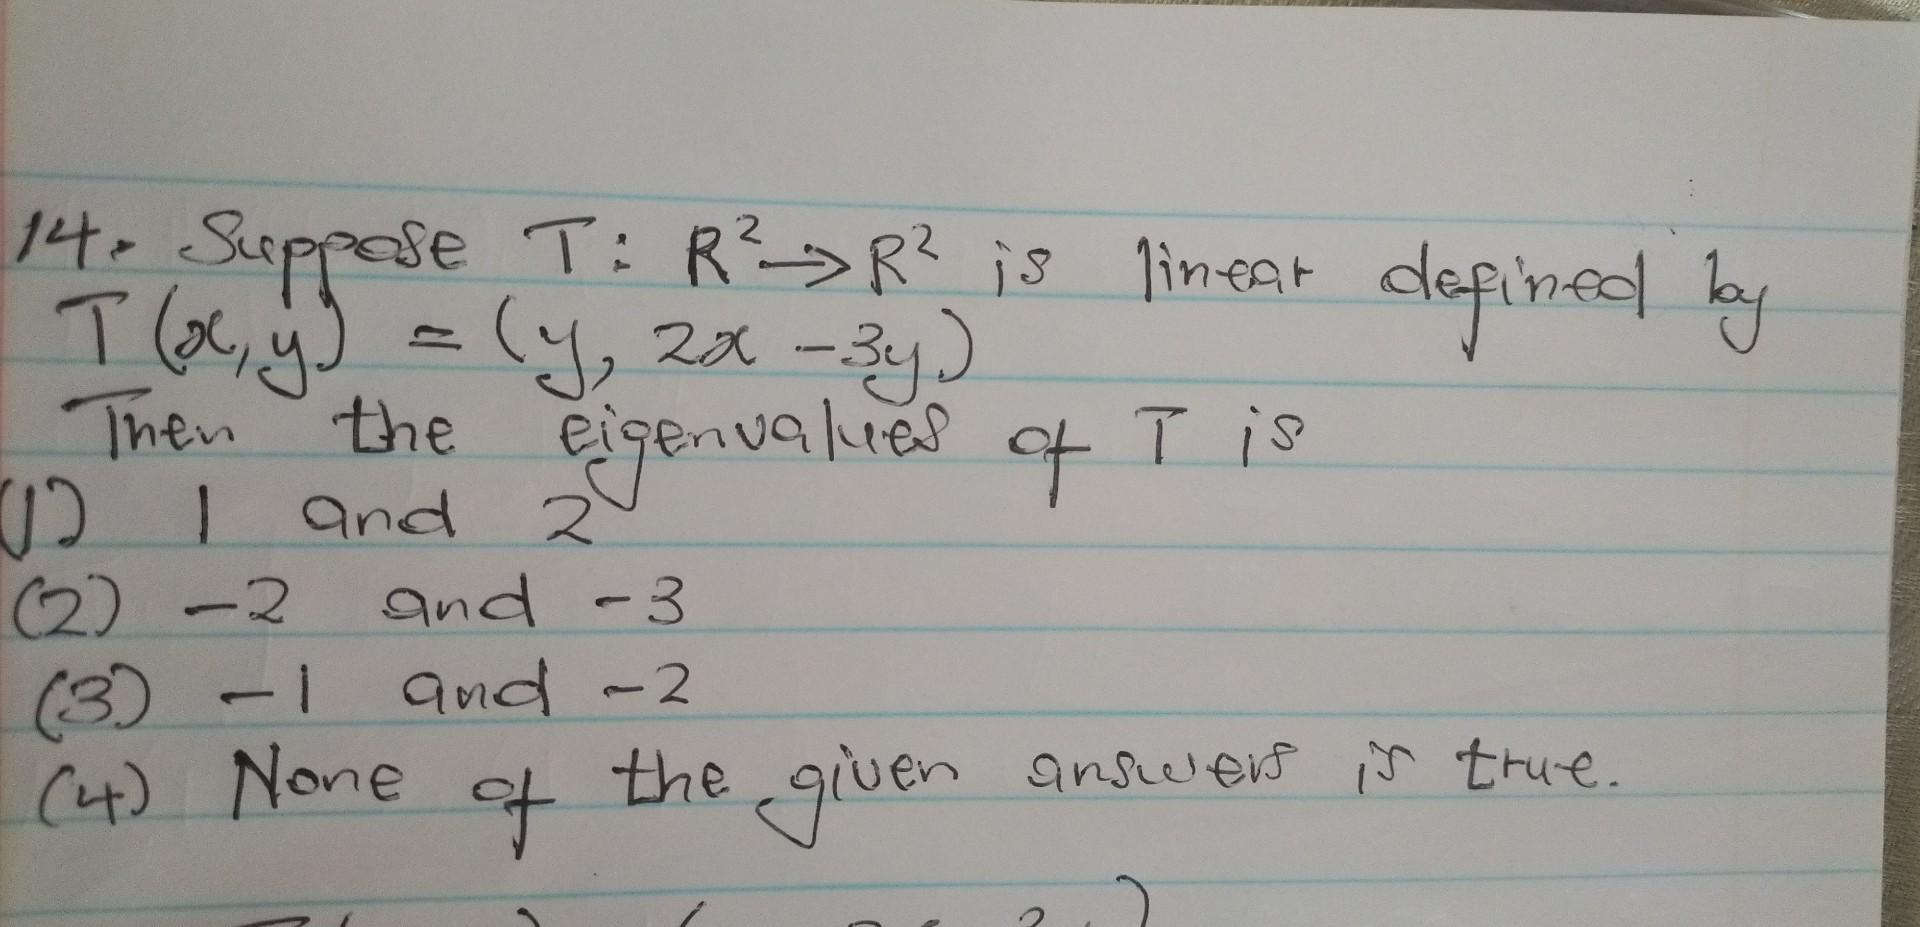 14. Suppose T: R² → R² is linear defined by
T(x,y) = (y, 2x - 3y)
Then the eigenvalues of T is
(1) 1 and 2
(2) -2 and -3
(3) -1 and -2
(4) None of the given answers is true.